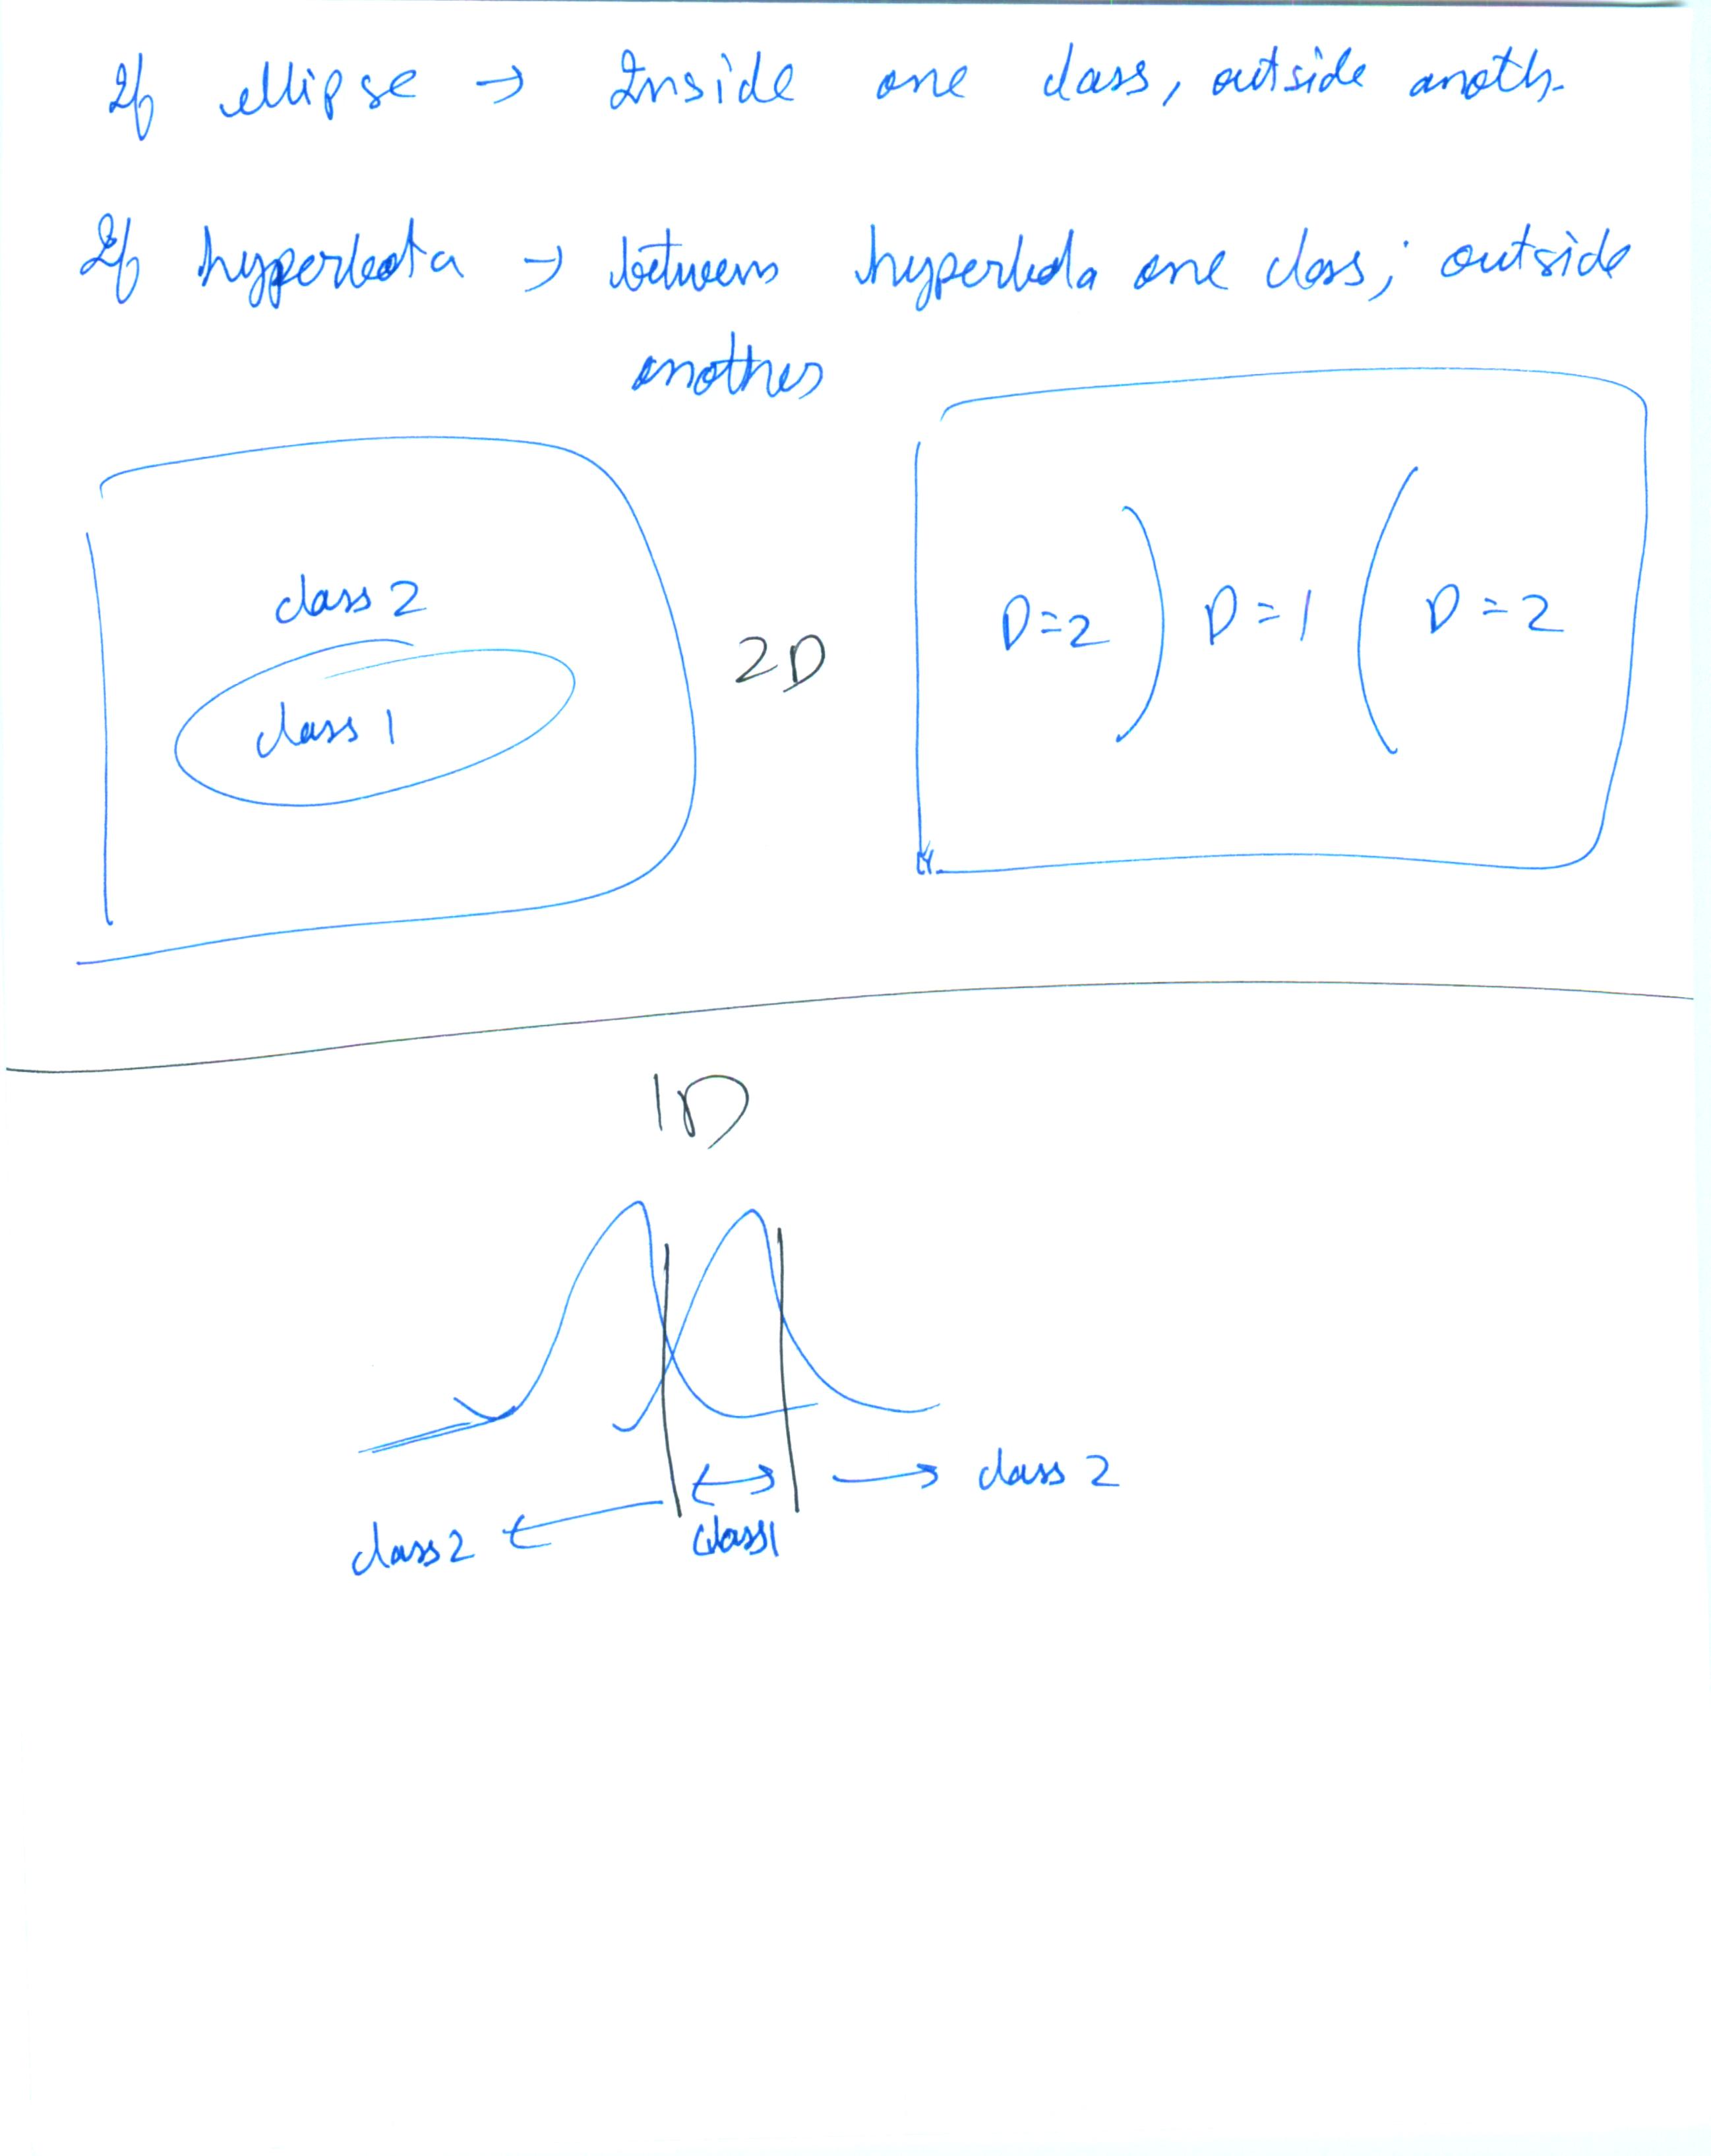 If ellipse → Inside one class, outside anoth.
If hyperbola → between hyperbola one class; outside
another
class 2
class 1
2D
D=2
D=1
D=2
1D
class 2
class 2
class1